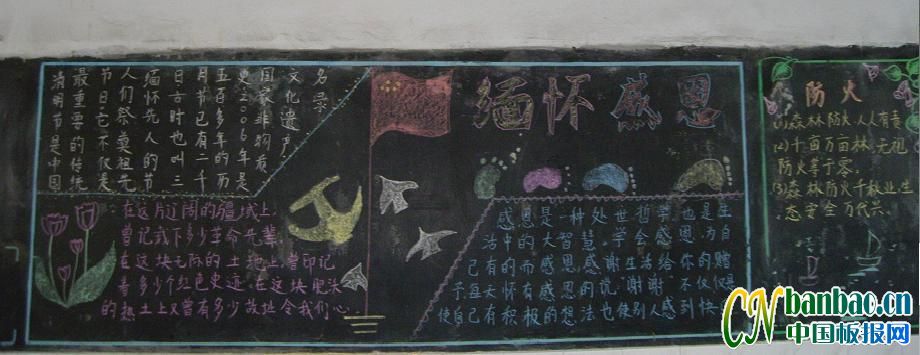 清明节是中国
最重要的传统
节日它不仅是
人们祭奠祖先
缅怀先人的节
日古时也叫三
月节已有二千
五百多年的历
史2006年是
国家非物质
文化遗产
名录
缅怀感恩
在这片辽阔的疆域上,
曾记载下多少革命先辈,
在这块无际的土地上,曾印记
着多少个红色史迹,在这块
的热土上又曾有多少故址令我们心
感恩是一种处世哲学,也是生
活中的大智慧。学会感恩,为自
己有的而感恩,感谢生活给你的赠
予,每天怀有感恩的说"谢谢"不仅仅是
使自己有积极的想法,也使别人感到快
防火
(1)森林防火人人有责
(2)十亩万亩林无
防火等于零。
(3)森林防火千秋业,生
态安全万代兴。
CN banbao.cn
中国板报网